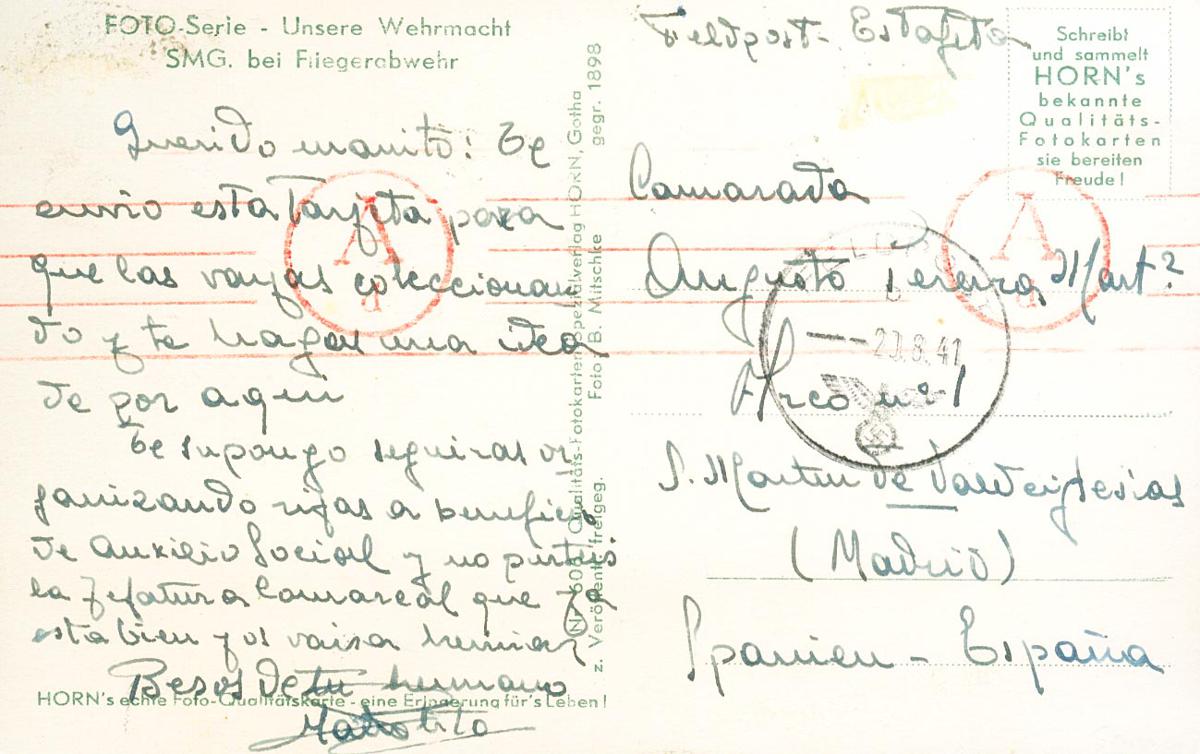 FOTO-Serie - Unsere Wehrmacht
SMG. bei Fliegerabwehr
Querido manito: Te
envio esta Tarjita para
que las vayas coleccionan
do y te hagas una idea
de por aqui
Te supongo seguiras or
ganizando rifas a beneficio
de Auxilio Social y no
la Jefatura Comarcal que ya
esta bien y os vais a
Besos de tu hermano
HORN's echte Foto-Qualitätskarte - eine Erinnerung für's Leben!
Qualitäts-Fotokarten Spezialverlag HORN, Gotha
z. Veröffentl. freigeg. Foto B. Mitschke gegr. 1898
Feldpost - Estafeta
Schreibt
und sammelt
HORN's
bekannte
Qualitäts-
Fotokarten
sie bereiten
Freude!
Camarada
Augusto Pereira Mart?
Arco nº 1
S. Martin de Valdeiglesias
(Madrid)
Spanien - España
A
a
A
a
FELDPOST
8.41